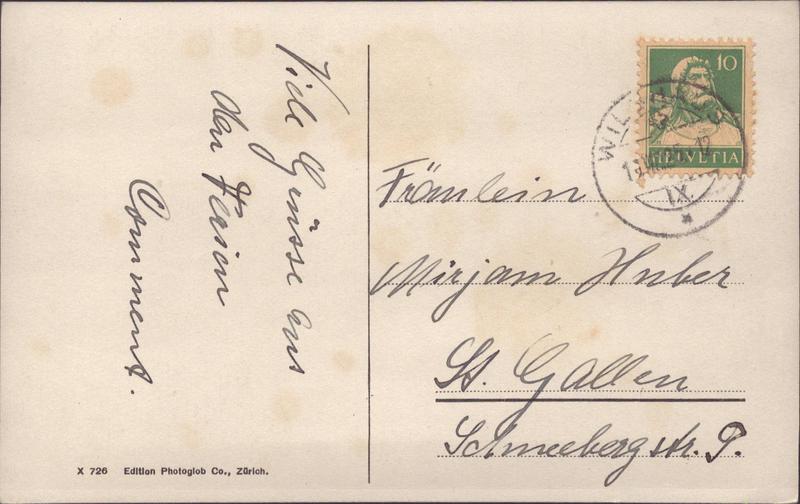 Viele Grüsse aus
den Ferien
Comment.
10
HELVETIA
WIL
IX
Fräulein
Mirjam Huber
St. Gallen
Schneebergstr. 9.
X 726 Edition Photoglob Co., Zürich.